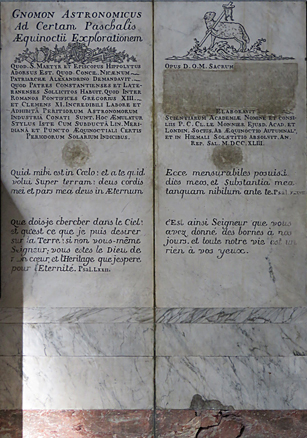 Gnomon Astronomicus
Ad Certam Paschalis
Æquinoctii Explorationem
Quod S. Martyr et Episcopus Hippolytus
Adorsus Est. Quod Conc. Nicænum
Patriarchæ Alexandrino Demandavit
Quod Patres Constantienses et Late-
ranenses Sollicitos Habuit. Quod Inter
Romanos Pontifices Gregorius XIII
et Clemens XI. Incredibili Labore et
Adhibita Peritiorum Astronomorum
Industria Conati Sunt. Hoc Æmulatur
Stylus Iste Cum Subducta Lin. Meri-
diana et Puncto Æquinoctiali Certis
Periodorum Solarium Indicibus.
Quid mihi est in Cœlo: et a te quid
volui Super terram: deus cordis
mei et pars mea deus in Æternum
Que dois-je chercher dans le Ciel:
et qu'est ce que je puis desirer
sur la Terre: si non vous-même
Seigneur, vous estes le Dieu de
mon cœur, et l'Heritage que j'espere
pour l'Eternité. Psal. LXXII.
Opus D.O.M. Sacrum
Elaboravit
Scientiarum Academiæ Nomine et Consi-
liis P. C. Cl. Le Monnier Ejusd. Acad. et
London. Socius. Ab Æquinoctio Autumnal.
et in Hiemali Solstitio Absolvit. An.
Rep. Sal. M.DCC.XLIII.
Ecce mensurabiles posuisti
dies meos, et Substantia mea
tanquam nihilum ante te.
c'Est ainsi Seigneur que vous
avez donné des bornes à nos
jours, et toute notre vie est un
rien à vos yeux.